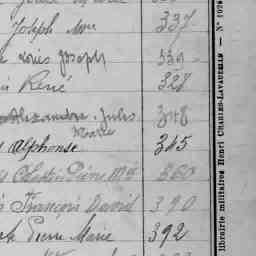 Joseph Marie 337
Louis Joseph 339
René 328
Alexandre Jules 348
Marie
Alphonse 345
Célestin Pierre Mie 360
François David 390
Pierre Marie 392
librairie militaires Henri CHARLES-LAVAUZELLE — N° 1028